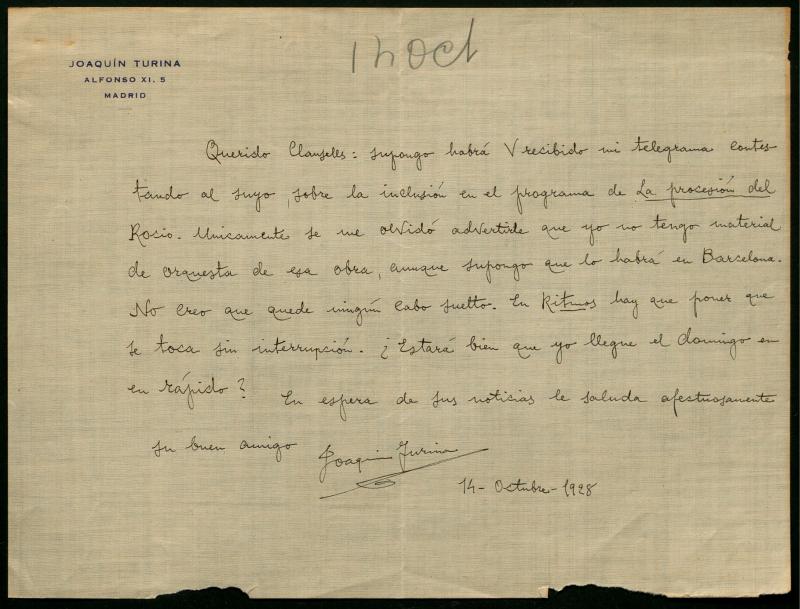 14 Oct
JOAQUÍN TURINA
ALFONSO XI, 5
MADRID
Querido Clausells: supongo habrá V recibido mi telegrama contes
tando al suyo, sobre la inclusión en el programa de La procesión del
Rocio. Unicamente se me olvidó advertirle que yo no tengo material
de orquesta de esa obra, aunque supongo que lo habrá en Barcelona.
No creo que quede ningún cabo suelto. En Ritmos hay que poner que
se toca sin interrupción. ¿Estará bien que yo llegue el domingo en
en rápido? En espera de sus noticias le saluda afectuosamente
su buen amigo Joaquin Turina
14- Octubre-1928